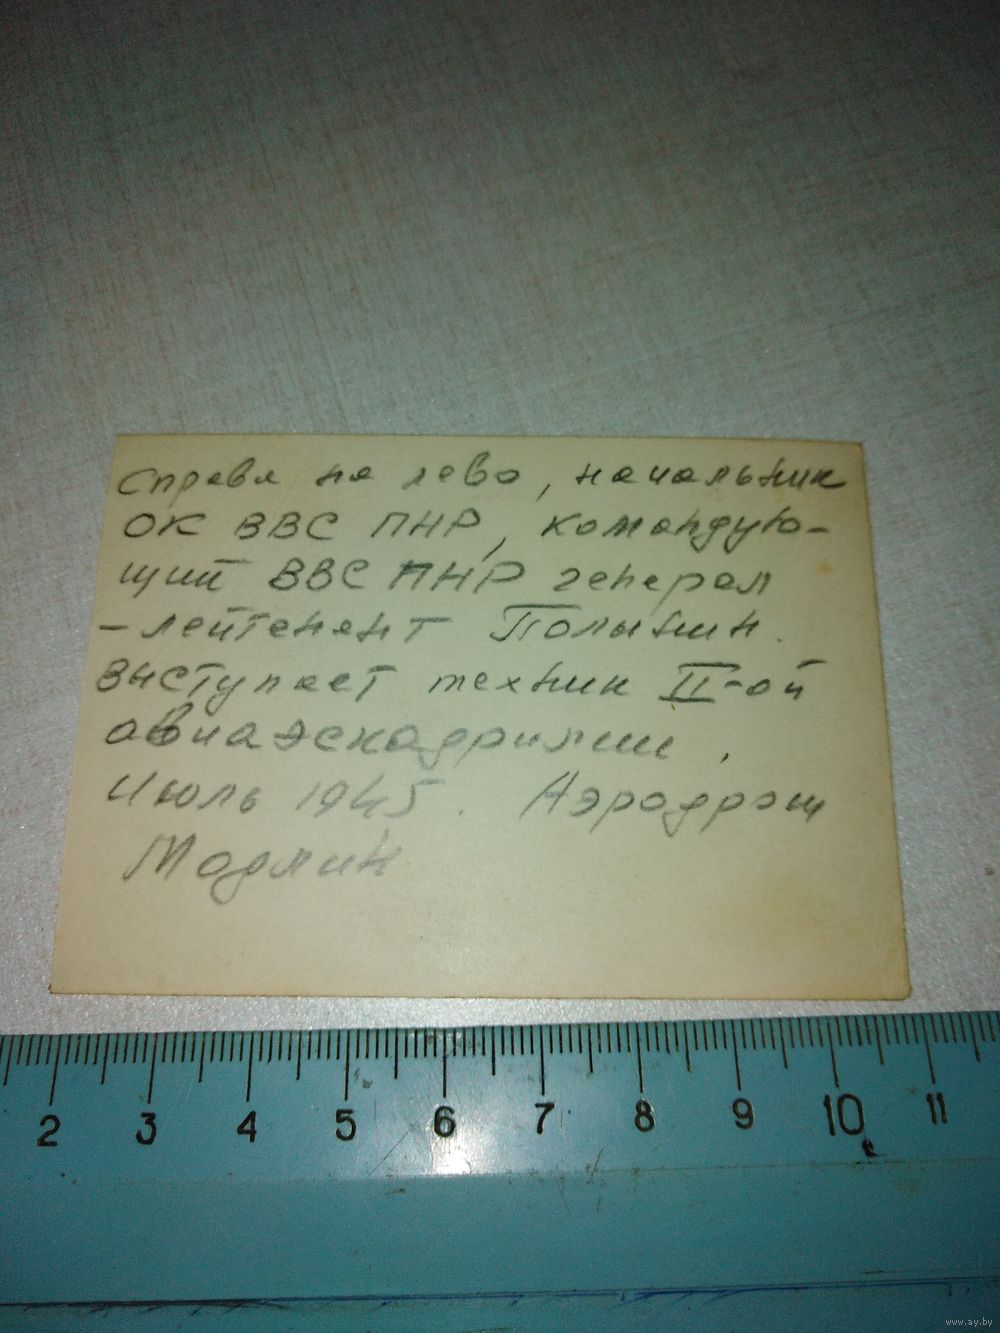 справа на лево, начальник
ОК ВВС ПНР, командую-
щий ВВС ПНР генерал
-лейтенант Полынин.
выступает техник II-ой
авиаэскадрилии,
Июль 1945. Аэродром
Модлин
2 3 4 5 6 7 8 9 10 11
www.ay.by